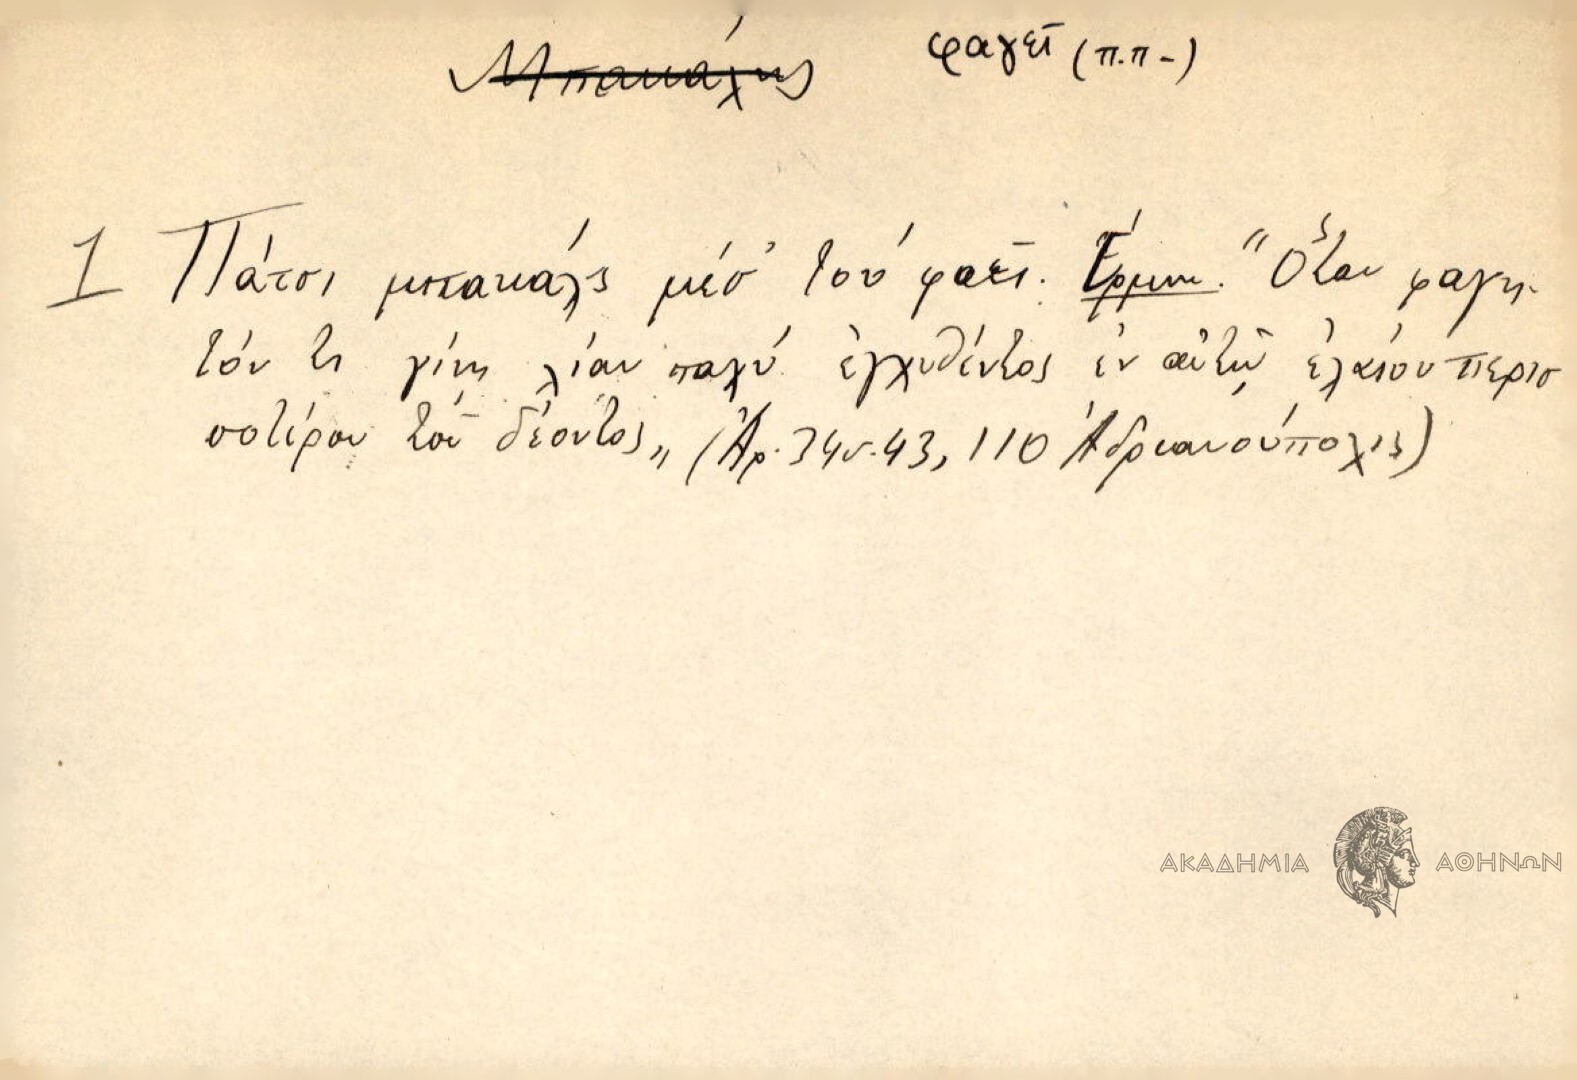 Μπακάλης φαγεῖ (π.π-)
1 Πάτσι μπακάλς μέσ' τού φαεῖ. Ἑρμην. "Ὅταν φαγη-
τόν τι γίνῃ λίαν παχύ ἐγχυθέντος ἐν αὐτῷ ἐλαίου περισ
σοτέρου τοῦ δέοντος" (Ἀρ. 34υ.43, 110 Ἀδριανούπολις)
ΑΚΑΔΗΜΙΑ ΑΘΗΝΩΝ